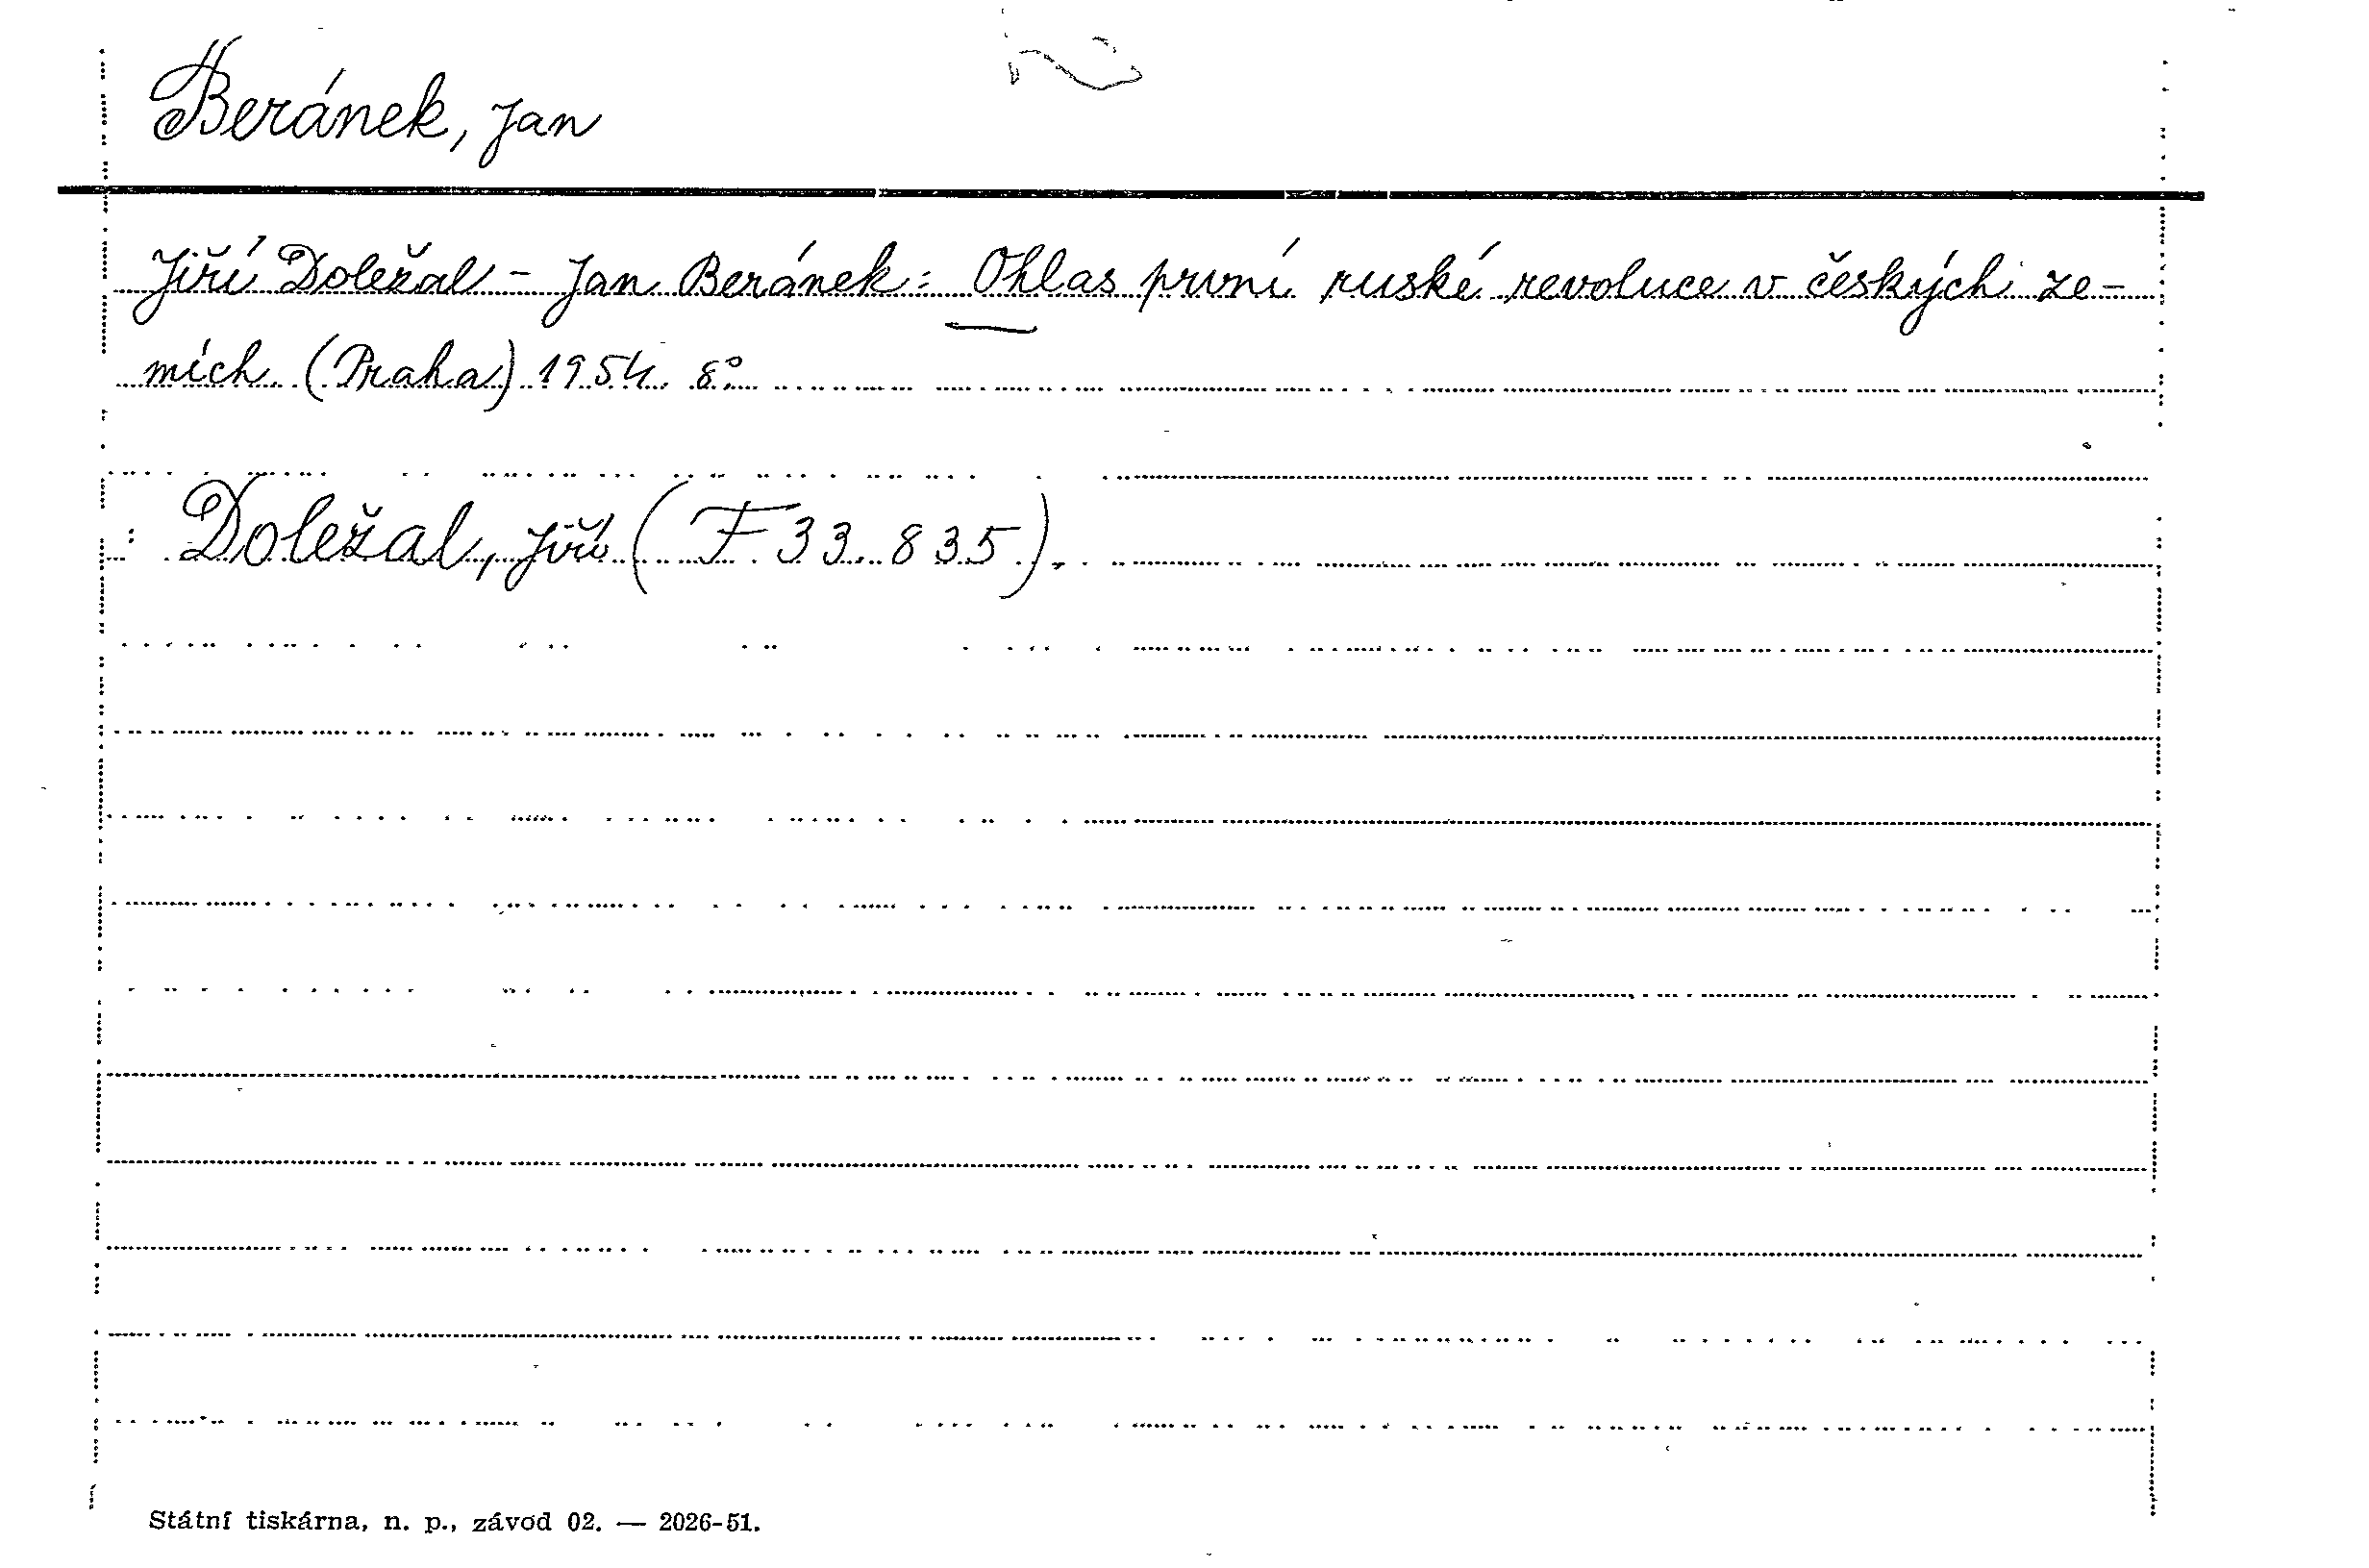 Beránek, Jan
Jiří Doležal - Jan Beránek: Ohlas první ruské revoluce v českých ze-
mích. (Praha) 1954. 8°
Doležal, Jiří (F 33.835).
Státní tiskárna, n. p., závod 02. — 2026-51.